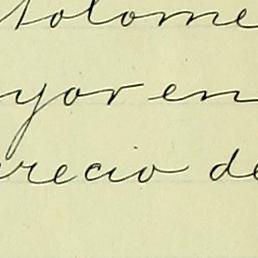 tolome
yor en
recio de